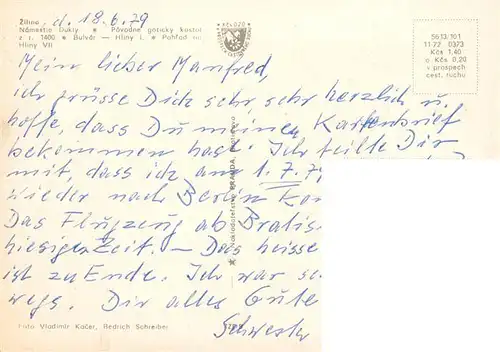 Žilina, d. 18.6.79
Námestie Dukly * Pôvodne gotický kostol
z r. 1400 * Bulvár — Hliny I. * Pohľad na
Hliny VII
5613/101
11-77 0373
Kčs 1,40
a Kčs 0,20
v prospech
cest. ruchu
Mein lieber Manfred,
ich grüsse Dich sehr sehr herzlich u.
hoffe, dass Du meinen Kartenbrief
bekommen hast. Ich teilte Dir
mit, dass ich am 1.7.7
wieder nach Berlin
Das Flugzeug ab Bratis
hiesiger Zeit. — Das heisse
ist zu Ende. Ich war
wegs. Dir alles Gute
Schwester
Nakladateľstvo PRAHA, Bratislava
Foto Vladimír Kačer, Bedrich Schreiber